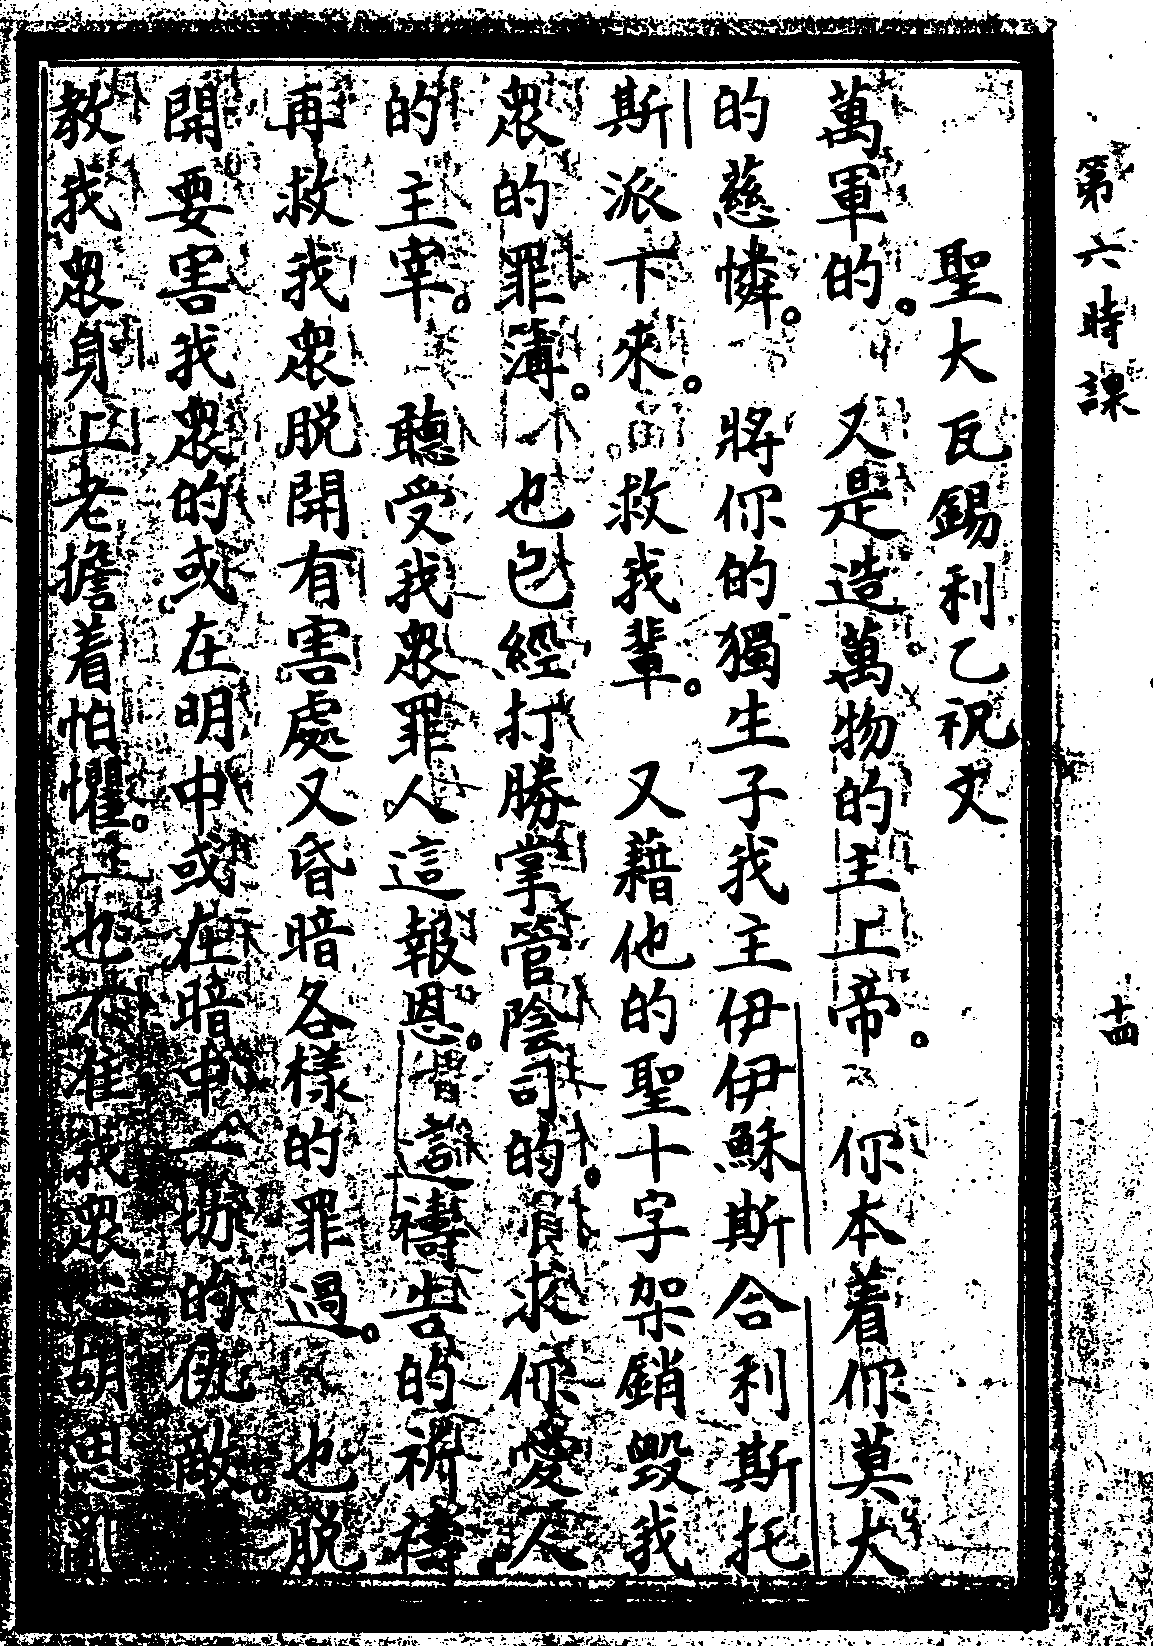 第六時課
十四
聖大瓦錫利乙祝文
萬軍的。又是造萬物的主上帝。你本着你莫大
的慈憐。將你的獨生子我主伊伊穌斯合利斯托
斯派下來。救我輩。又藉他的聖十字架銷毀我
眾的罪簿。也已經打勝掌管陰司的。求你愛人
的主宰。聽受我眾罪人這報恩。禱告的祈禱。
再救我眾脱開有害處又昏暗各樣的罪過。也脱
開要害我眾的或在明中或在暗中一切的仇敵。
教我眾身上老擔着怕懼。也不准我眾胡思亂